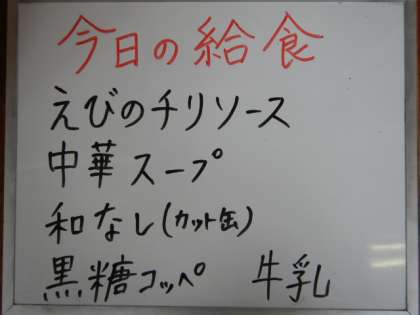 今日の給食
えびのチリソース
中華スープ
和なし(カット缶)
黒糖コッペ 牛乳